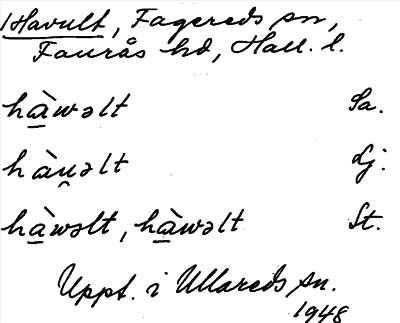 Havult, Fagereds sn,
Faurås hd, Hall. l.
hàwəlt Sa.
hàu̯əlt Lj.
hàwəlt, hàwəlt St.
Uppt. i Ullareds sn.
1948